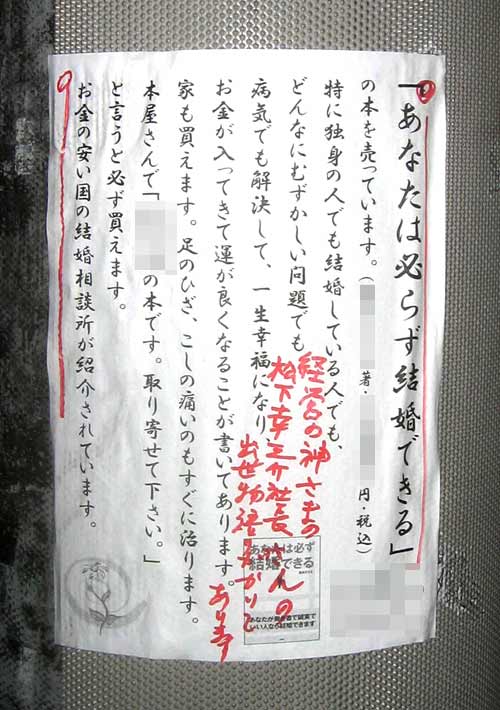 「あなたは必らず結婚できる」
の本を売っています。（著・円・税込）
特に独身の人でも結婚している人でも、
どんなにむずかしい問題でも
病気でも解決して、一生幸福になり、
お金が入ってきて運が良くなることが書いてあります。
家も買えます。足のひざ、こしの痛いのもすぐに治ります。
本屋さんで「の本です。取り寄せて下さい。」
と言うと必ず買えます。
お金の安い国の結婚相談所が紹介されています。
経営の神さまの
松下幸之介社長さんの
出世物語
あります
あなたは必ず
結婚できる